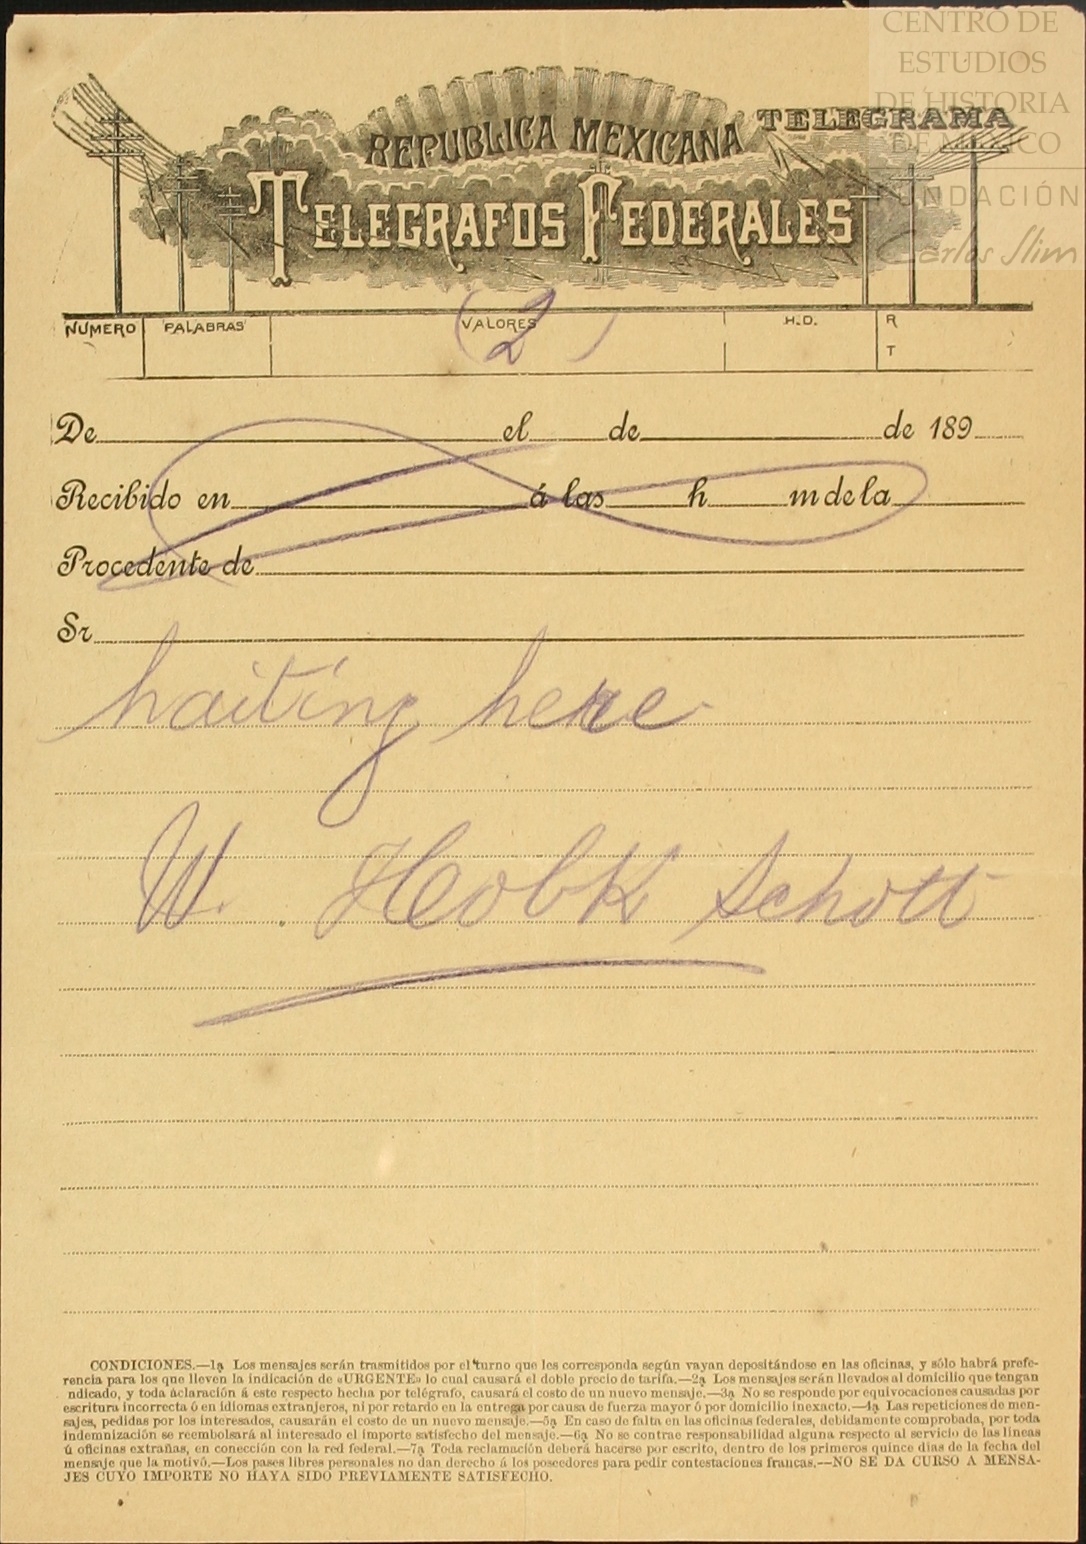 CENTRO DE
ESTUDIOS
DE HISTORIA
DE MÉXICO
FUNDACIÓN
Carlos Slim
REPUBLICA MEXICANA TELEGRAMA
TELEGRAFOS FEDERALES
NUMERO PALABRAS VALORES H.D. R
T
(2)
De el de de 189
Recibido en á las h m de la
Procedente de
Sr
haiting here
W. Hobk Schott
CONDICIONES.—1ª Los mensajes serán trasmitidos por el turno que les corresponda según vayan depositándose en las oficinas, y sólo habrá prefe-
rencia para los que lleven la indicación de «URGENTE» lo cual causará el doble precio de tarifa.—2ª Los mensajes serán llevados al domicilio que tengan
ndicado, y toda áclaración á este respecto hecha por telégrafo, causará el costo de un nuevo mensaje.—3ª No se responde por equivocaciones causadas por
escritura incorrecta ó en idiomas extranjeros, ni por retardo en la entrega por causa de fuerza mayor ó por domicilio inexacto.—4ª Las repeticiones de men-
sajes, pedidas por los interesados, causarán el costo de un nuevo mensaje.—5ª En caso de falta en las oficinas federales, debidamente comprobada, por toda
indemnización se reembolsará al interesado el importe satisfecho del mensaje.—6ª No se contrae responsabilidad alguna respecto al servicio de las líneas
ú oficinas extrañas, en conección con la red federal.—7ª Toda reclamación deberá hacerse por escrito, dentro de los primeros quince dias de la fecha del
mensaje que la motivó.—Los pases libres personales no dan derecho á los poseedores para pedir contestaciones francas.—NO SE DA CURSO A MENSA-
JES CUYO IMPORTE NO HAYA SIDO PREVIAMENTE SATISFECHO.